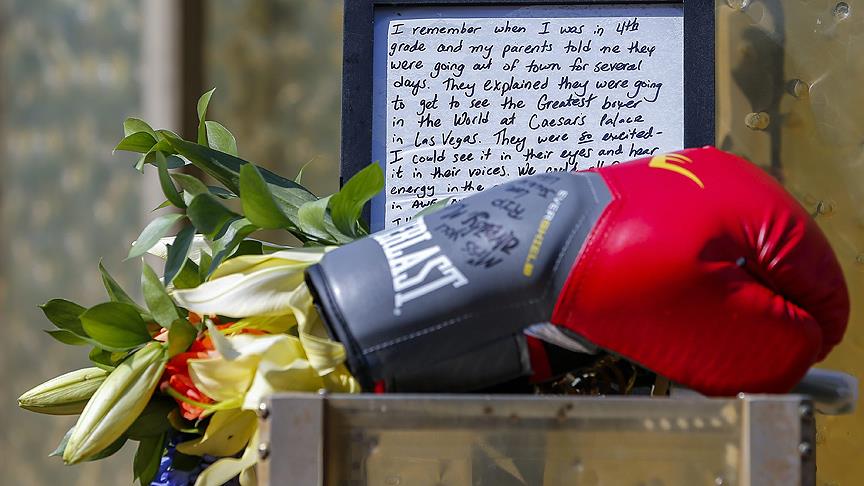 I remember when I was in 4th
grade and my parents told me they
were going out of town for several
days. They explained they were going
to get to see the Greatest boxer
in the World at Caesars Palace
in Las Vegas. They were so excited-
I could see it in their eyes and hear
it in their voices. We
energy in the
in AWE
EVERSHIELD
RIP
Miss you
already
LAST